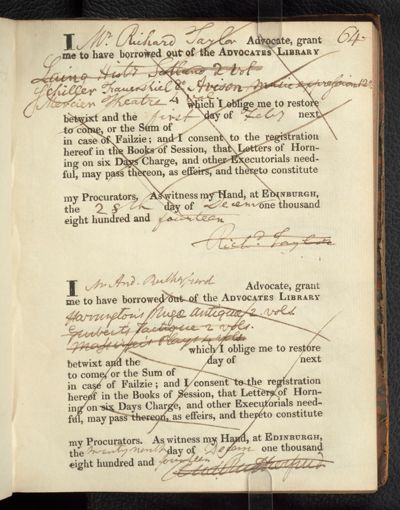 64
I Mr. Richard Taylor Advocate, grant
me to have borrowed out of the ADVOCATES LIBRARY
Laing Hist. Scotland 2 vol
Schiller Trauerspiel 8o Avison Musical expression 12o
Mercier Theatre 4 vol
which I oblige me to restore
betwixt and the first day of Feby next
to come, or the Sum of
in case of Failzie; and I consent to the registration
hereof in the Books of Session, that Letters of Horn-
ing on six Days Charge, and other Executorials need-
ful, may pass thereon, as effeirs, and thereto constitute
my Procurators. As witness my Hand, at EDINBURGH,
the 28th day of Decem one thousand
eight hundred and fourteen
Richd. Taylor
I Mr And. Rutherfurd Advocate, grant
me to have borrowed out of the ADVOCATES LIBRARY
Harrington's Nugæ Antiquæ 2 vols
Guibert Tactique 2 vols.
Massinger's Plays 4 vols
which I oblige me to restore
betwixt and the day of next
to come, or the Sum of
in case of Failzie; and I consent to the registration
hereof in the Books of Session, that Letters of Horn-
ing on six Days Charge, and other Executorials need-
ful, may pass thereon, as effeirs, and thereto constitute
my Procurators. As witness my Hand, at EDINBURGH,
the twenty ninth day of Decem one thousand
eight hundred and fourteen
And. Rutherfurd